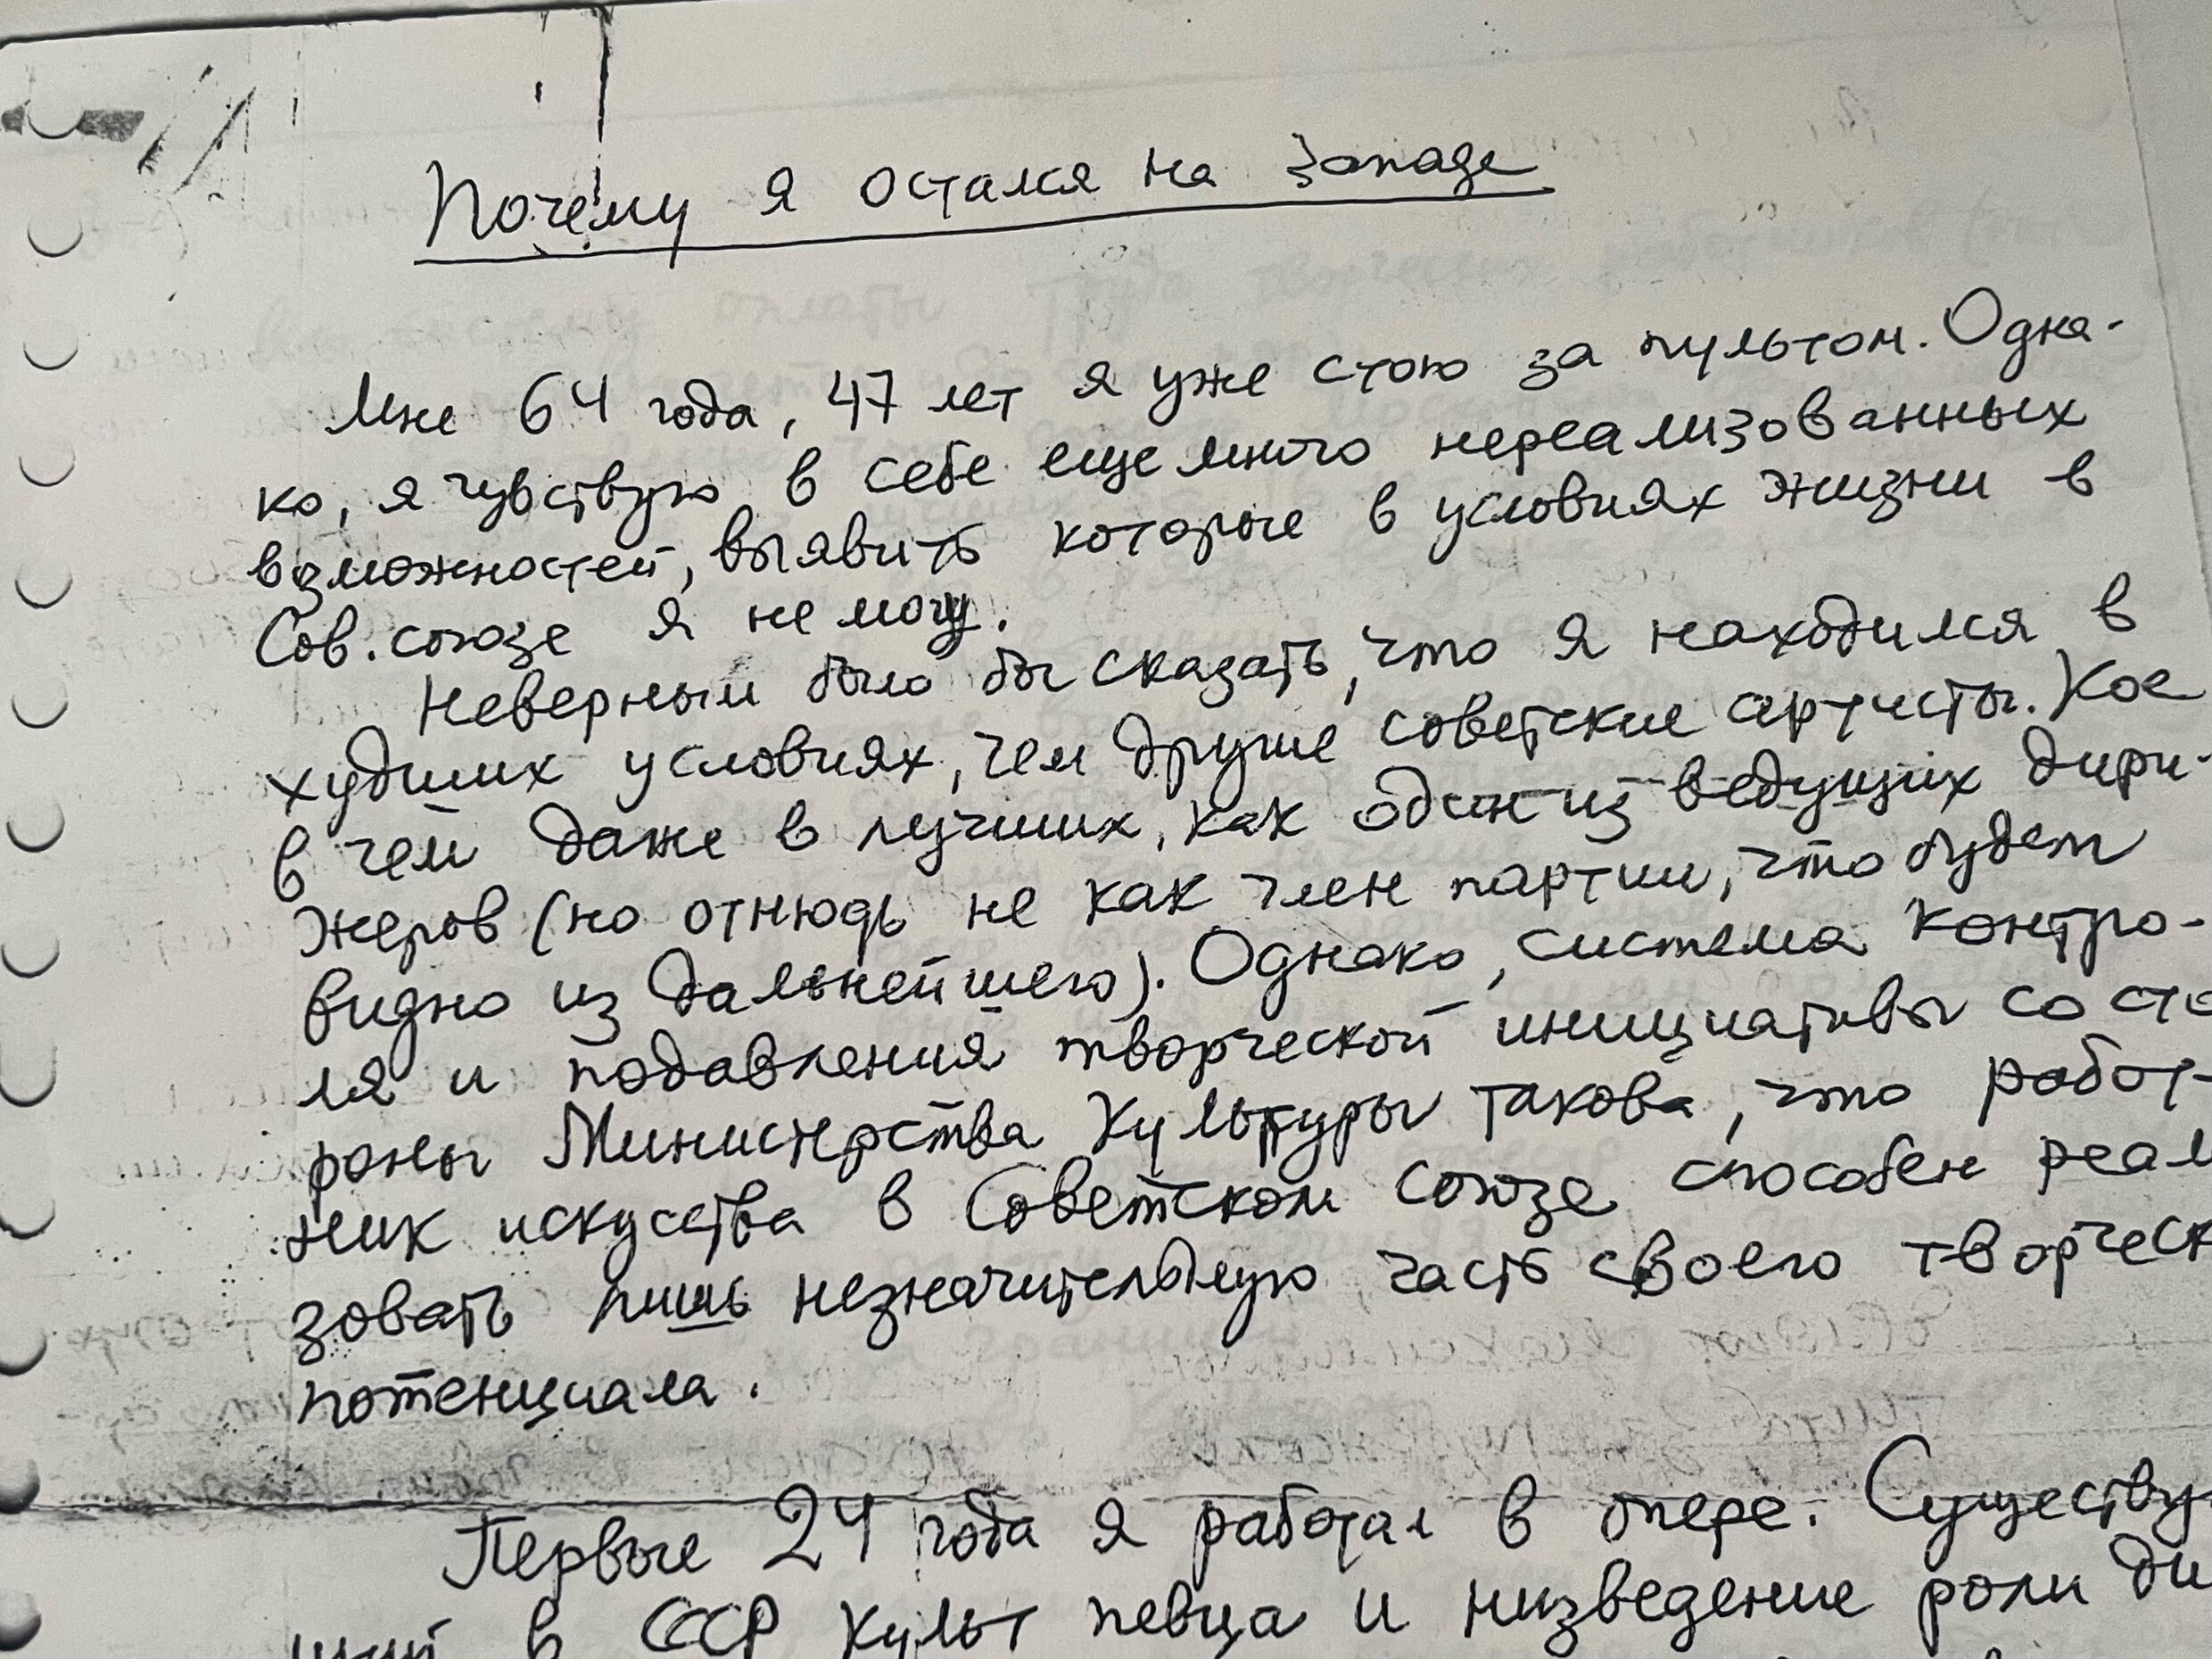 Почему я остался на Западе
Мне 64 года, 47 лет я уже стою за пультом. Одна-
ко, я чувствую в себе еще много нереализованных
возможностей, выявить которые в условиях жизни в
Сов. союзе я не могу.
Неверным было бы сказать, что я находился в
худших условиях, чем другие советские артисты. Кое
в чем даже в лучших, как один из ведущих дири-
жеров (но отнюдь не как член партии, что будет
видно из дальнейшего). Однако, система контро-
ля и подавления творческой инициативы со сто
роны Министерства Культуры такова, что работ-
ник искусства в Советском Союзе способен реал
зовать лишь незначительную часть своего творческ
потенциала.
Первые 24 года я работал в опере. Существу
щий в СССР культ певца и низведение роли ди